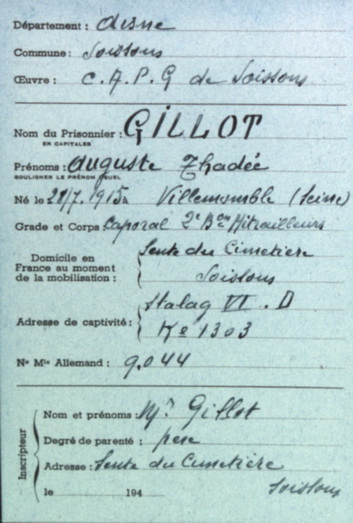 Département : Aisne
Commune : Soissons
Œuvre : C.A.P.G de Soissons
Nom du Prisonnier : GILLOT
EN CAPITALES
Prénoms : Auguste Thadée
SOULIGNER LE PRÉNOM USUEL
Né le 28/7.1915 à Villemomble (Seine)
Grade et Corps Caporal 2e Bon Mitrailleurs
Domicile en
France au moment
de la mobilisation :
Sente du Cimetière
Soissons
Adresse de captivité :
Stalag VI . D
Ko 1303
No Mle Allemand : 9.044
Inscripteur
Nom et prénoms : Mr Gillot
Degré de parenté : père
Adresse : Sente du Cimetière
le 194 Soissons